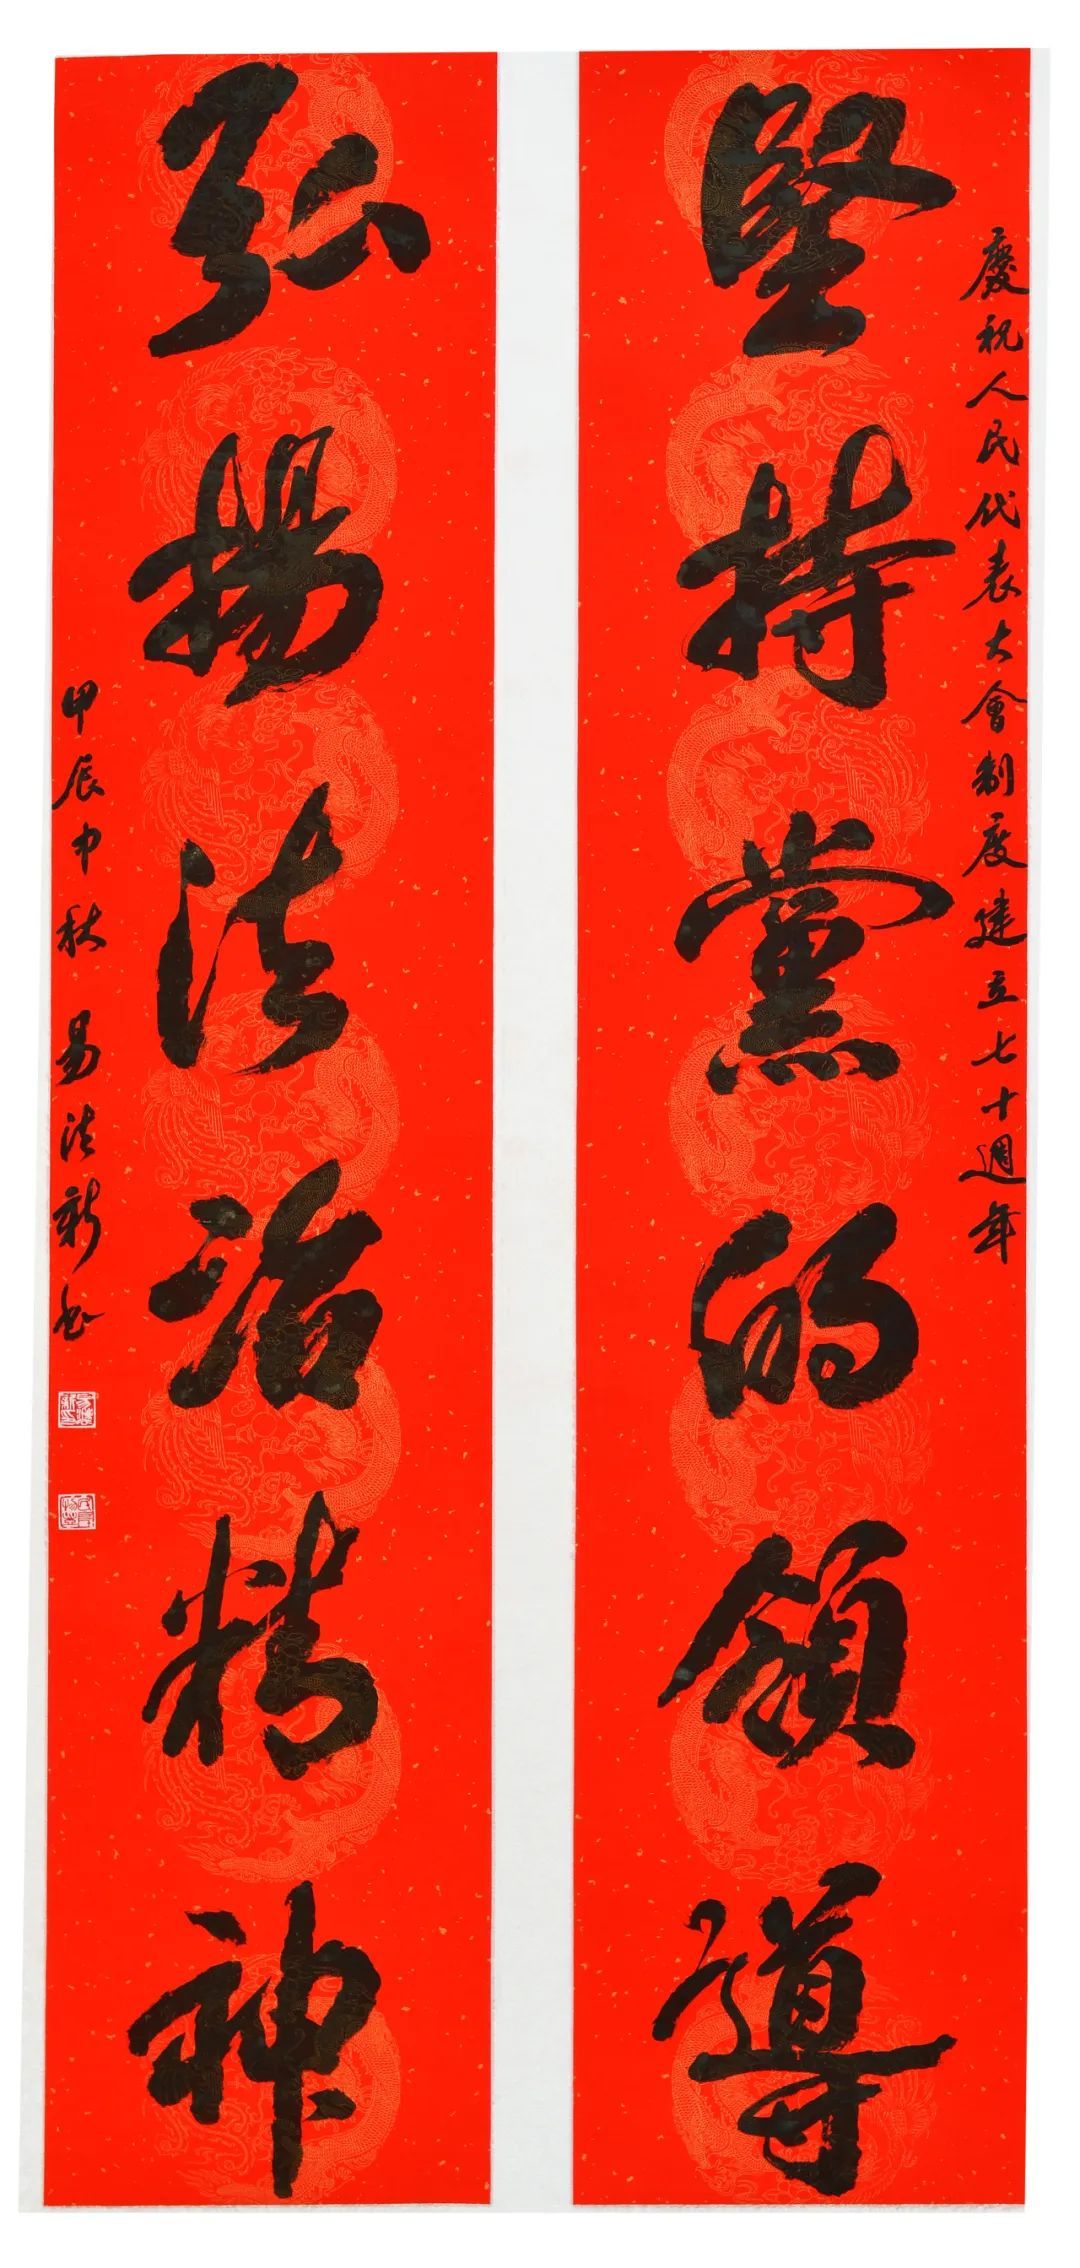 慶祝人民代表大會制度建立七十週年
堅持黨的領導
弘揚法治精神
甲辰中秋易法新书